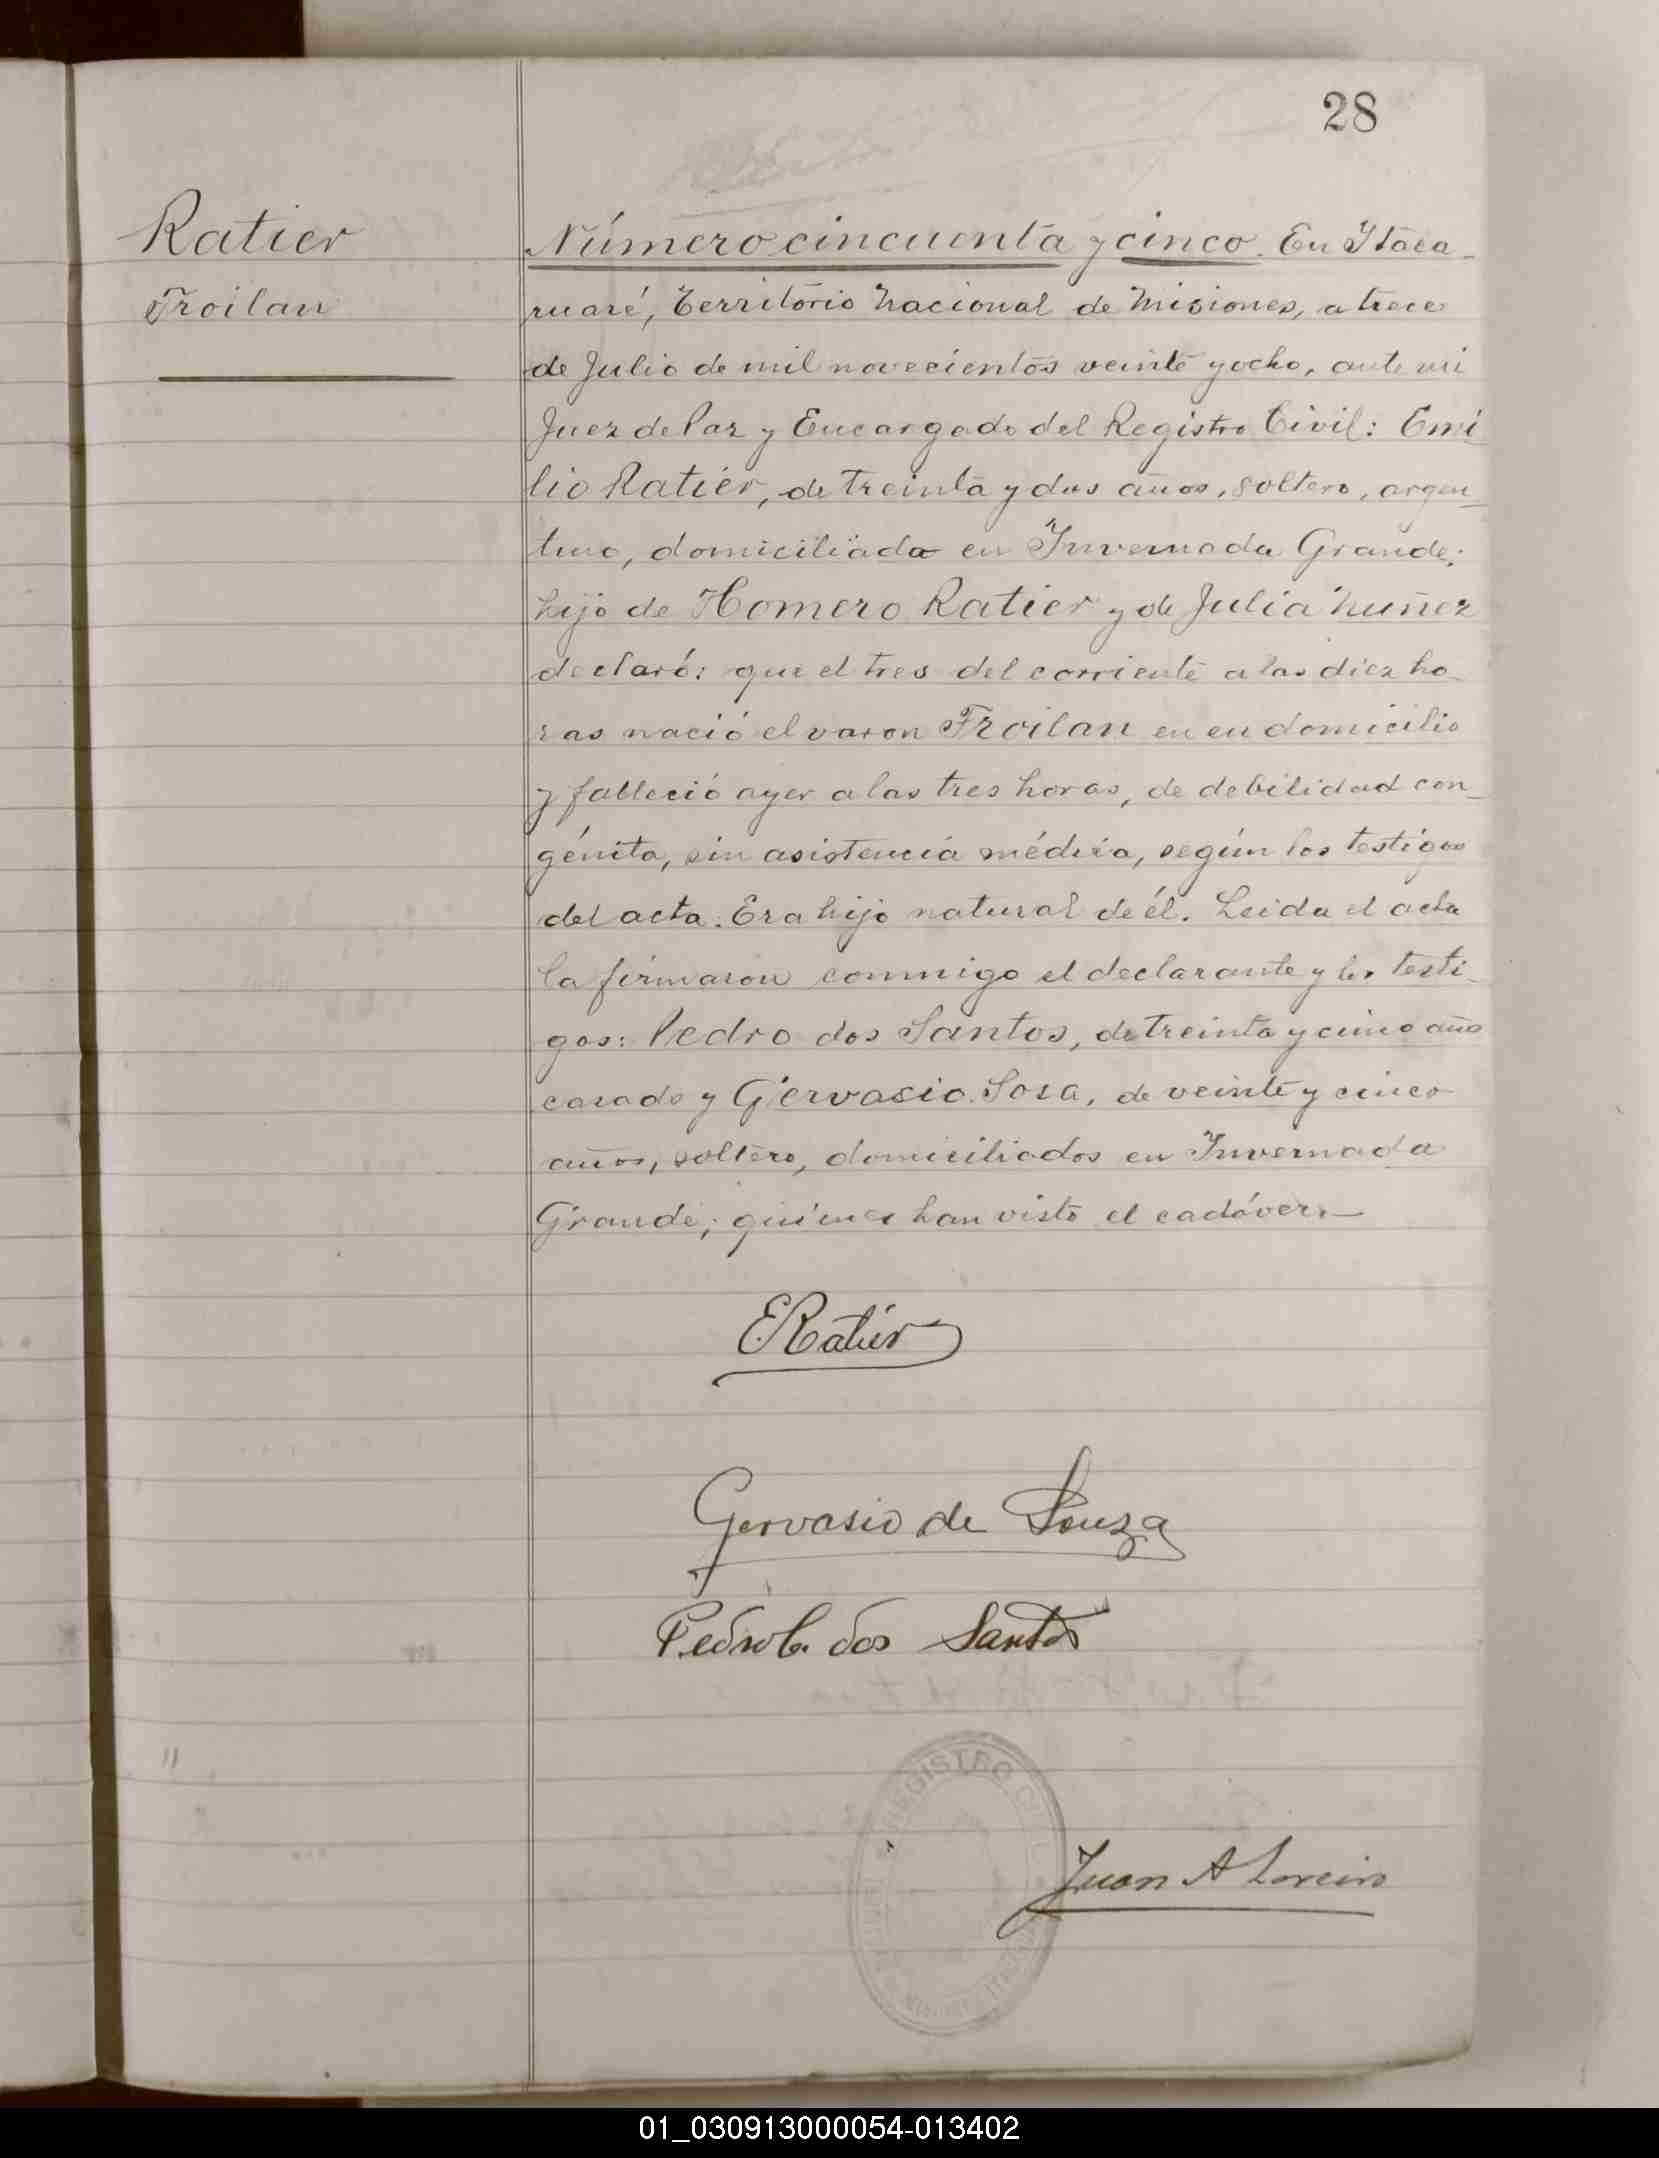 28
Ratier
Froilan
Número cincuenta y cinco. En Itaca-
ruaré, Territorio Nacional de Misiones, a trece
de Julio de mil novecientos veinte y ocho, ante mi
Juez de Paz y Encargado del Registro Civil: Emi
lio Ratier, de treinta y dos años, soltero, argen-
tino, domiciliado en Invernada Grande;
hijo de Homero Ratier y de Julia Nuñez
declaró: que el tres del corriente a las diez ho-
ras nació el varon Froilan en en domicilio
y falleció ayer a las tres horas, de debilidad con-
génita, sin asistencia médica, según los testigos
del acta. Era hijo natural de él. Leida el acta
la firmaron conmigo el declarante y los testi-
gos: Pedro dos Santos, de treinta y cinco años
casado y Gervasio Sosa, de veinte y cinco
años, soltero, domiciliados en Invernada
Grande; quienes han visto el cadáver.—
E Ratier
Gervasio de Souza
Pedro C. dos Santos
REGISTRO CIVIL
Juan A Loreiro
01_030913000054-013402